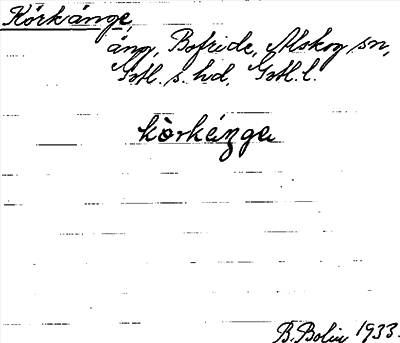 Körkänge,
äng, Bofride, Alskog sn,
Gotl. s. hd, Gotl. l.
kòrkánga
B. Bolin 1933.